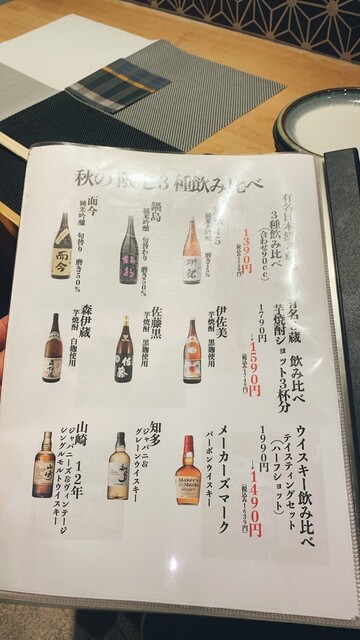 秋の
3種飲み比べ
3種飲み比べ
(合わせ90cc)
1390円
純米吟醸
鍋島
純米吟醸
磨き50%
而今
純米吟醸
磨き50%
飲み比べ
芋焼酎ショット3杯分
1790円
→1590円
伊佐美
芋焼酎 黒麹使用
佐藤黒
芋焼酎 黒麹使用
森伊蔵
芋焼酎 白麹使用
ウイスキー飲み比べ
テイスティングセット
(ハーフショット)
1990円
→1490円
(税込み1639円)
メーカーズマーク
バーボンウイスキー
知多
ジャパニーズ
グレーンウイスキー
山崎 12年
ジャパニーズ&ヴィンテージ
シングルモルトウイスキー